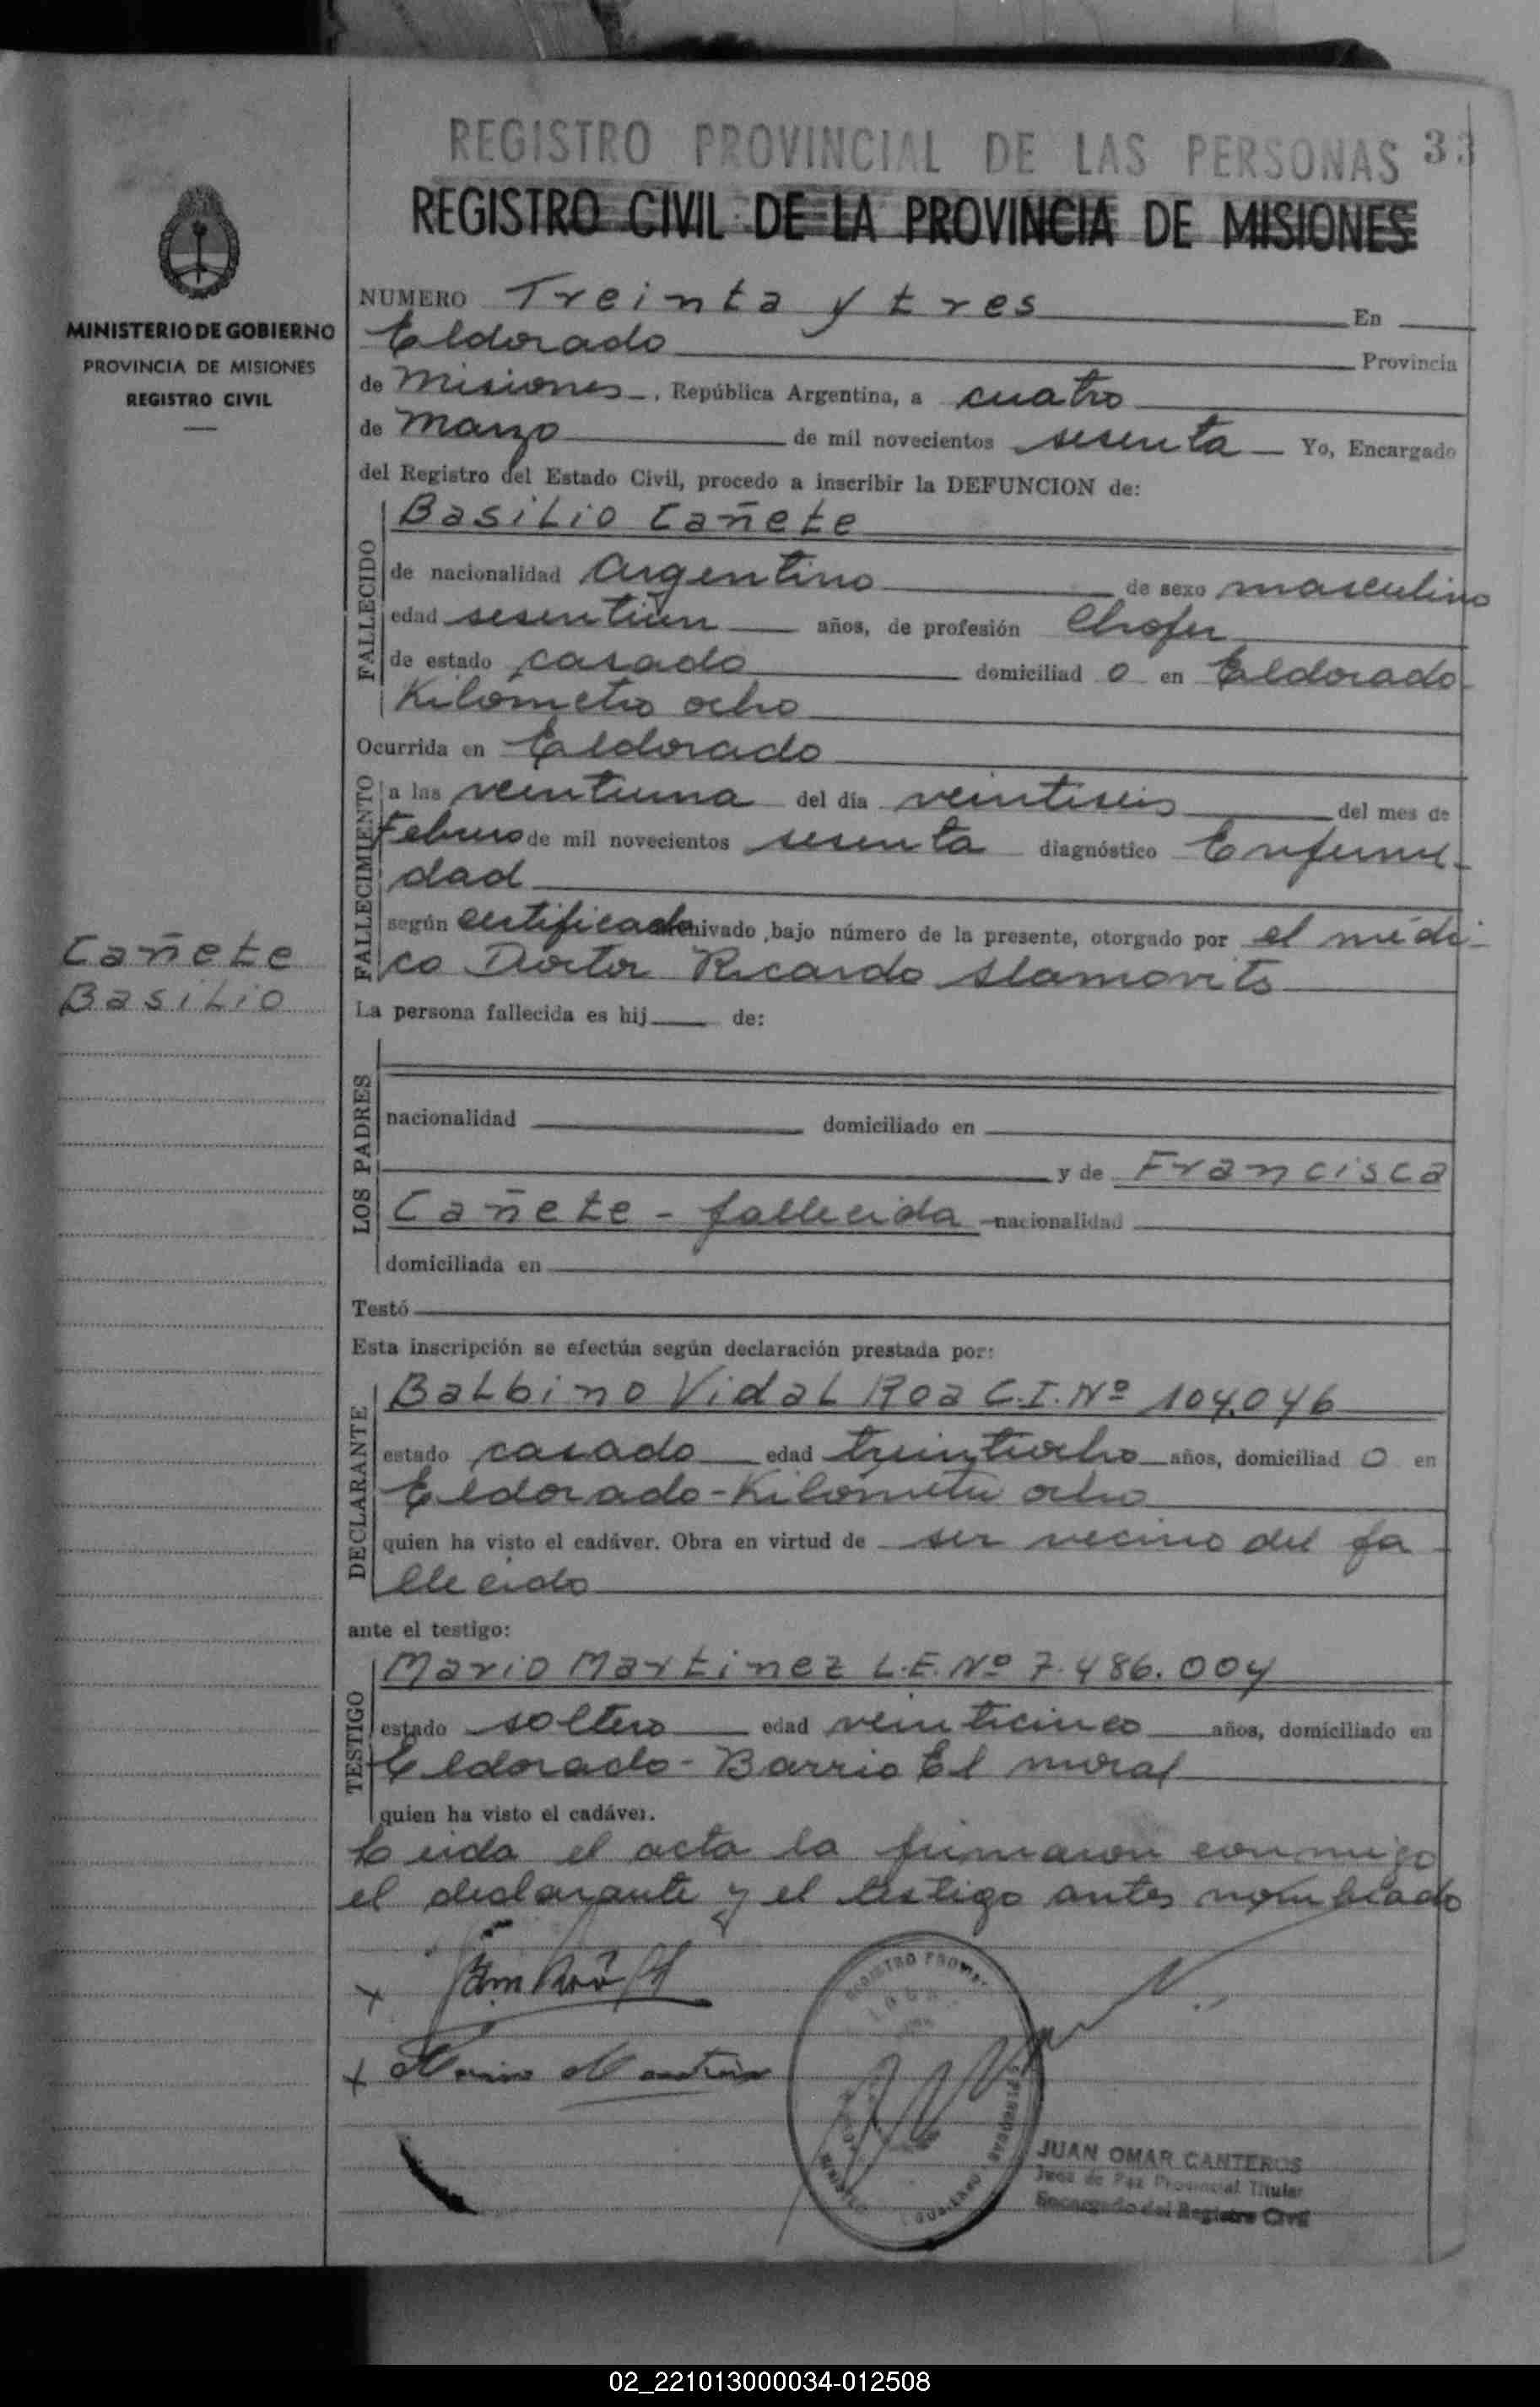 REGISTRO PROVINCIAL DE LAS PERSONAS 33
REGISTRO CIVIL DE LA PROVINCIA DE MISIONES
MINISTERIO DE GOBIERNO
PROVINCIA DE MISIONES
REGISTRO CIVIL
Cañete
Basilio
NUMERO Treinta y tres En
Eldorado Provincia
de Misiones, República Argentina, a cuatro
de Marzo de mil novecientos sesenta Yo, Encargado
del Registro del Estado Civil, procedo a inscribir la DEFUNCION de:
FALLECIDO
Basilio Cañete
de nacionalidad Argentino de sexo masculino
edad sesentiun años, de profesión Chofer
de estado casado domiciliad o en Eldorado
Kilometro ocho
Ocurrida en Eldorado
FALLECIMIENTO
a las veintiuna del día veintiseis del mes de
Febrero de mil novecientos sesenta diagnóstico Enferme-
dad
según certificado archivado, bajo número de la presente, otorgado por el médi-
co Doctor Ricardo
La persona fallecida es hij de:
LOS PADRES
nacionalidad domiciliado en
y de Francisca
Cañete - fallecida nacionalidad
domiciliada en
Testó
Esta inscripción se efectúa según declaración prestada por:
DECLARANTE
Balbino Vidal Roa C.I. Nº 104.046
estado casado edad treintiocho años, domiciliad o en
Eldorado - Kilómetro ocho
quien ha visto el cadáver. Obra en virtud de ser vecino del fa
llecido
ante el testigo:
TESTIGO
Mario Martinez L.E. Nº 7.486.004
estado soltero edad veinticinco años, domiciliado en
Eldorado - Barrio El
quien ha visto el cadáver.
Leida el acta la firmaron conmigo
el declarante y el testigo antes nombrado
JUAN OMAR CANTEROS
Juez de Paz Provincial Titular
Encargado del Registro Civil
02_221013000034-012508